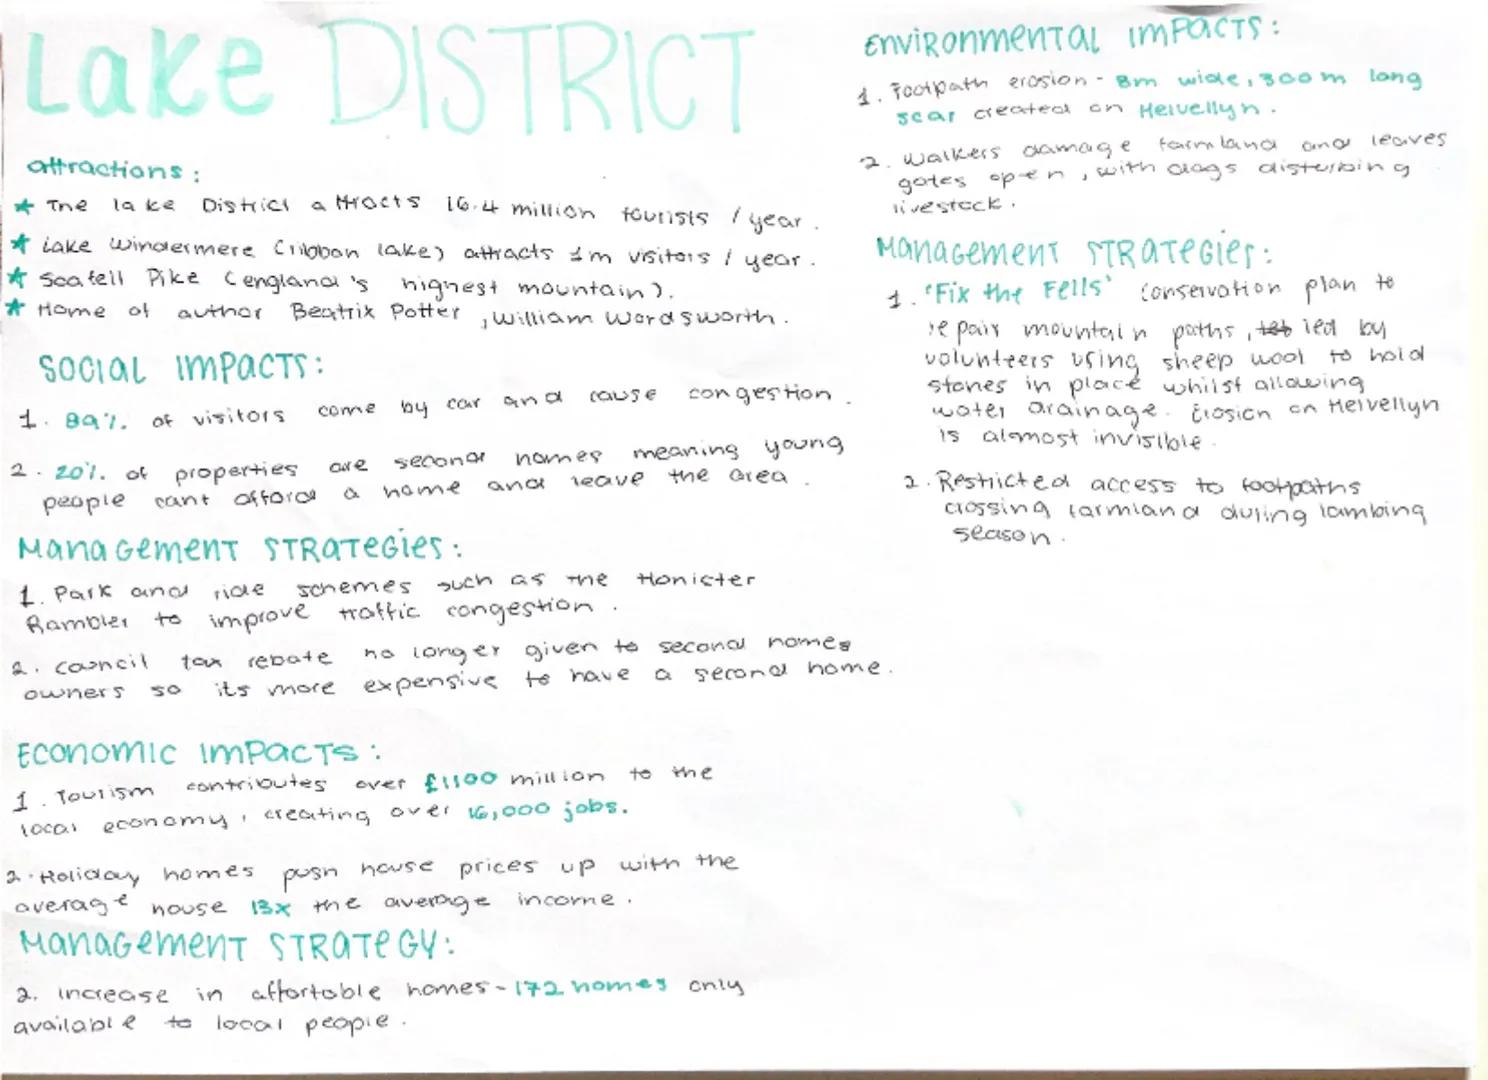 Lake DISTRICT
attractions:
★ The lake District attracts 16.4 million tourists / year.
★ Lake Windermere (ribbon lake) attracts 1m visitors / year.
★ Scafell Pike (england's highest mountain).
★ Home of author Beatrix Potter, William Wordsworth.
SOCIAL IMPACTS:
1. 89% of visitors come by car and cause congestion.
2. 20% of properties are second homes meaning young
people cant afford a home and leave the area.
Management STRATEGIES:
1. Park and ride schemes such as the Honister
Rambler to improve traffic congestion.
2. council tax rebate no longer given to second homes
owners so its more expensive to have a second home.
ECONOMIC IMPACTS:
1. Tourism contributes over £1100 million to the
local economy, creating over 16,000 jobs.
2. Holiday homes push house prices up with the
average house 13x the average income.
Management STRATEGY:
2. increase in affortable homes - 172 homes only
available to local people.
Environmental impacts:
1. Footpath erosion - 8m wide, 300m long
scar created on Helvellyn.
2. Walkers damage farmland and leaves
gates open, with dogs disturbing
livestock.
Management STRATEGIES:
1. 'Fix the Fells' conservation plan to
repair mountain paths, led by
volunteers using sheep wool to hold
stones in place whilst allowing
water drainage. Erosion on Helvellyn
is almost invisible.
2. Restricted access to footpaths
crossing farmland during lambing
season.